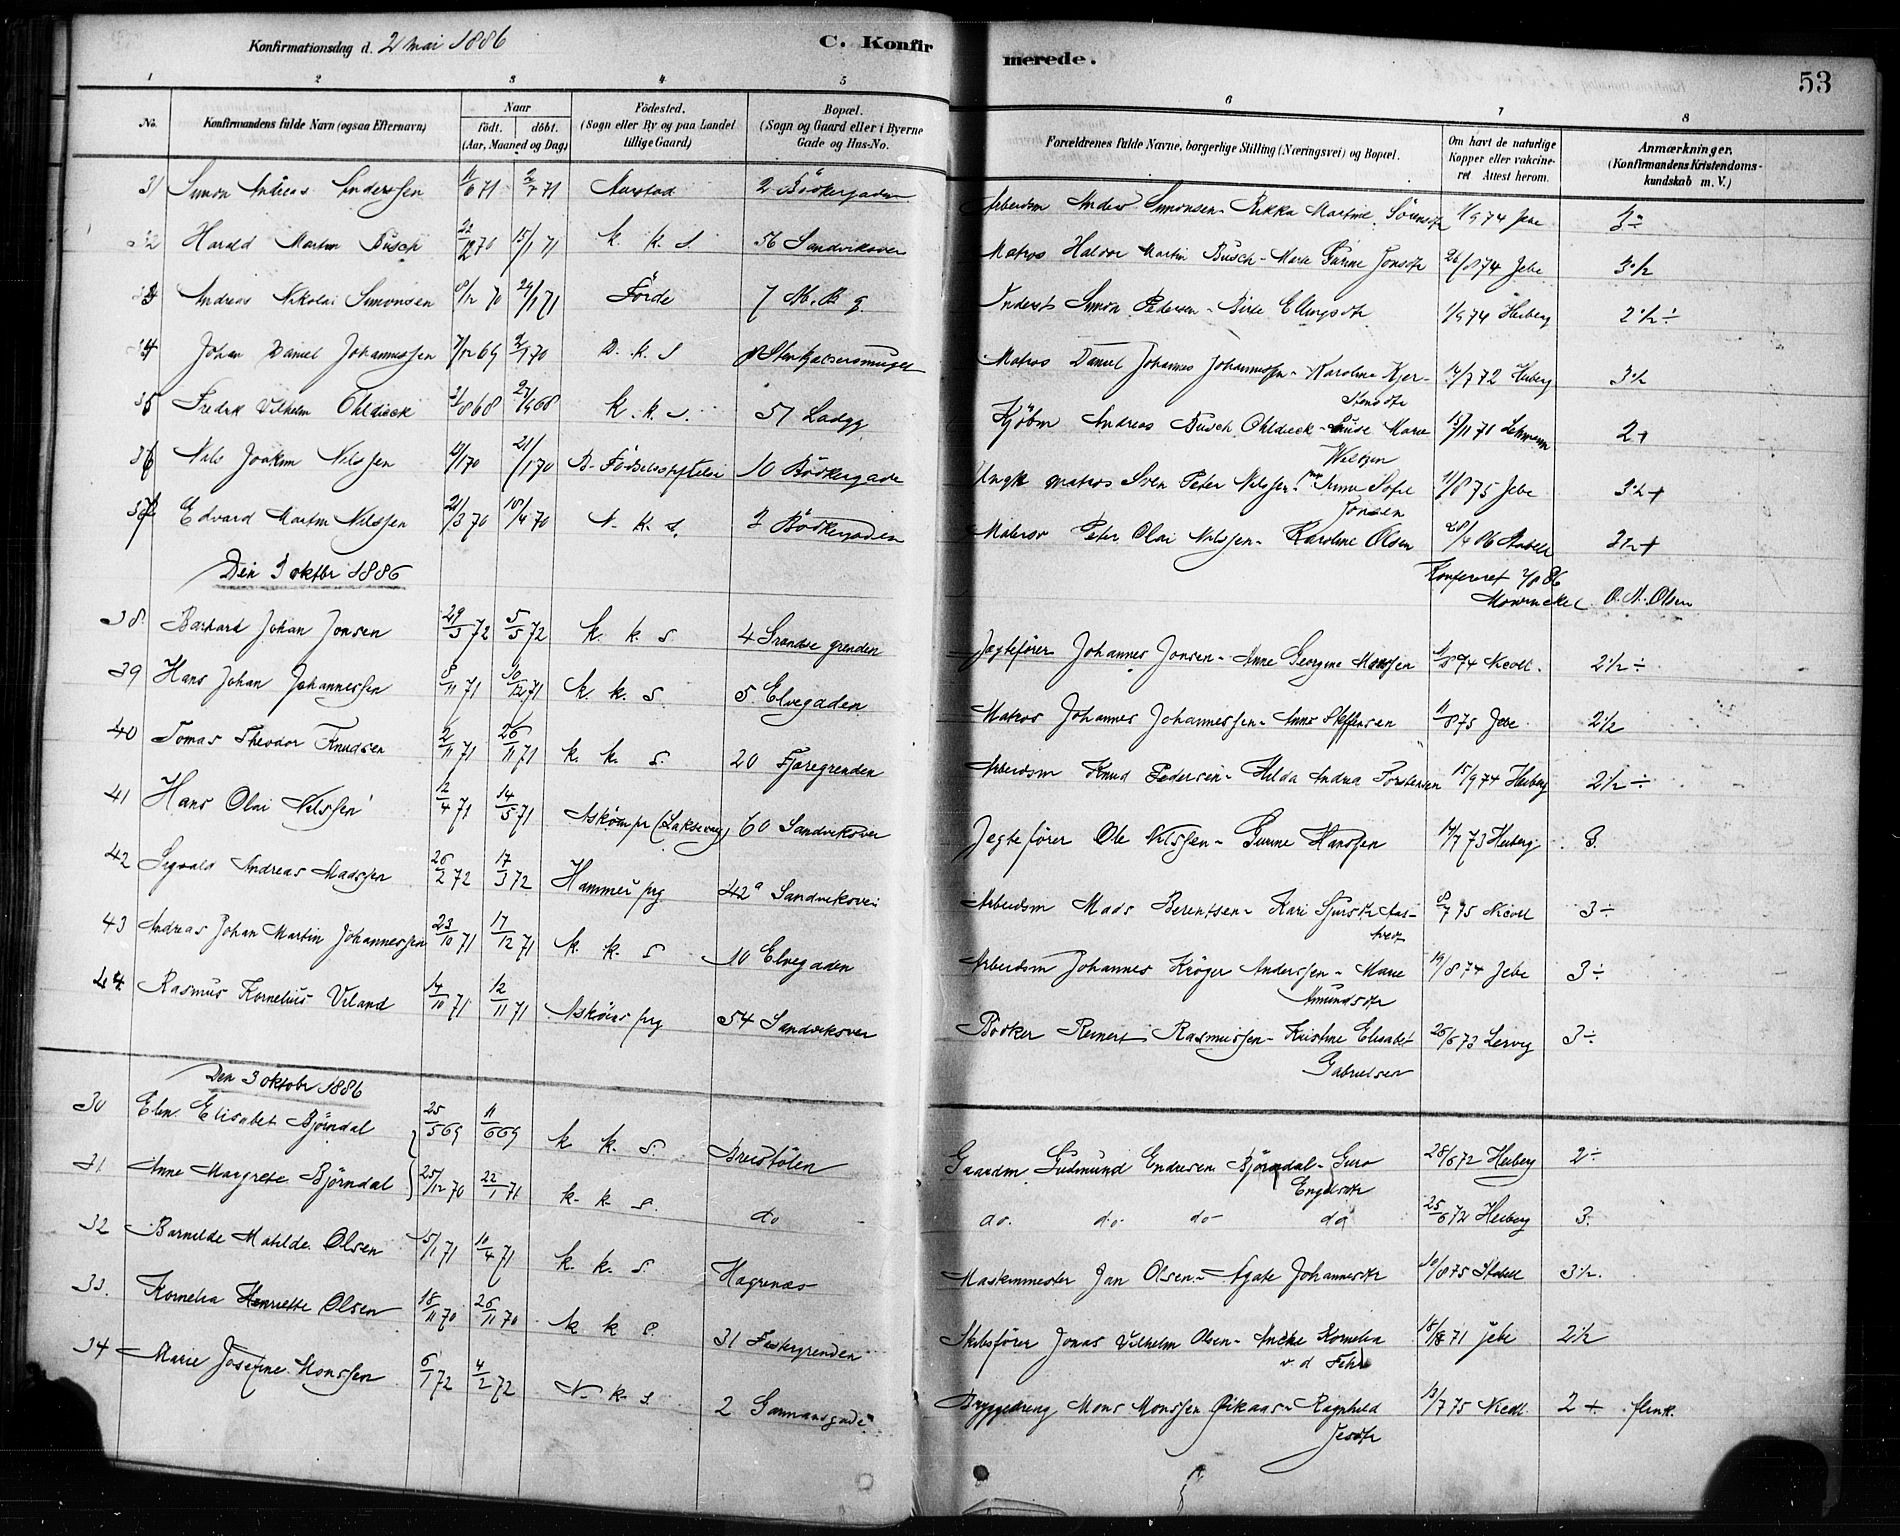 Konfirmationsdag d. 2 mai 1886
C. Konfirmerede.
53
1 2 3 4 5 6 7 8
No. | Konfirmandens fulde Navn (ogsaa Efternavn) | Naar født. døbt. (Aar, Maaned og Dag) | Fødested. (Sogn eller By og paa Landet tillige Gaard) | Bopæl. (Sogn og Gaard eller i Byerne Gade og Hus-No. | Forældrenes fulde Navne, borgerlige Stilling (Næringsvei) og Bopæl. | Om havt de naturlige Kopper eller vaccineret Attest herom. | Anmærkninger. (Konfirmandens Kristendomskundskab m. V.)
31 Simon Andreas Anderssen 11/6 71 2/7 71 Aarstad 2 Bödkergaden Arbeidsm Anders Simonsen - Rikka Martine Sörensdtr 1/9 74 Jebe 3÷
32 Harald Martin Busch 22/12 70 15/1 71 k. k. S. 56 Sandviksvei Matros Haldor Martin Busch - Marte Jonsdtr 26/8 74 Jebe 3 1/2
33 Andreas Nikolai Simonsen 8/12 70 29/1 71 Förde 7 M. B. g. Inderst Simon Pedersen - Birte Ellingsdtr 1/9 74 Heiberg 2 1/2 ÷
34 Johan Daniel Johannessen 7/12 69 2/1 70 D. k. S Matros Daniel Johannes Johannessen - Karoline Kjerstensdtr 14/7 72 Heiberg 3 1/2
35 Fredrik Vilhelm Ohldieck 21/8 68 27/9 68 k. k. S. 57 Ladgg Kjöbm Andreas Busch Ohldieck - Marie 13/11 71 Lehmann 2+
36 Nils Joakim Nilssen 12/1 70 21/1 70 B. Födselsstiftelse 10 Bödkergade Ungk matros Sven Peter Nilssen Sofie Jonsen 11/8 75 Jebe 3 1/2 +
37 Edvard Martin Nilssen 21/3 70 18/4 70 N. K. S. 3 Bödkergaden Peter Olai Nilssen - Karoline Olsen 28/4 86 Stabell 3 1/2 +
Den 3 oktbr 1886
Konfereret 2/8 86 Mowinckel O. N. Olsen
38. Johan Jonsen 29/3 72 5/5 72 k. k. S. 4 grenden Jægtefører Johannes Jonsen - Anne Georgine Monssen 11/8 74 Nicoll. 2 1/2 ÷
39 Hans Johan Johannessen 8/11 71 10/12 71 k. k. S. 5. Elvegaden Matros Johannes Johannessen - Anne Steffensen 11/8 75 Jebe. 2 1/2
40 Tomas Theodor Knudsen 2/11 71 26/11 71 k. k. S. 20 Fjæregrenden Arbeidsm Knud Pedersen - Hilda Andrea Torstensen 15/9 74 Heiberg 2 1/2 ÷
41 Hans Olai Nilssen 12/4 71 14/5 71 Askön pr (Laksevaag) 60 Sandviksvei Jegtefører Ole Nilssen - Gurine Hanssen 14/7 73 Heiberg 3.
42 Sigvald Andreas Madssen 26/2 72 17/3 72 Hammer prg 42a Sandviksvei Arbeidsm Mads Berentsen - Kari 8/7 75 Nicoll 3÷
43 Andreas Johan Martin Johannessen 23/10 71 17/12 71 k. k. S. 10 Elvegaden Arbeidsm Johannes Kröger Anderssen - Marie Amundsdtr 19/8 74 Jebe 3÷
44. Rasmus Kornelius Viland 14/10 71 12/11 71 Asköens prg 54 Sandviksvei Bödker Reinert Rasmussen - Kristine Elisabet Gabrielsen 26/6 73 Lervig 3÷
Den 3 oktobr 1886
30 Elen Elisabet Björndal 25/5 69 11/6 69 k k S. Breistölen Gaardm Gudmund Endresen Björndal - Guro Engelsdtr 28/6 72 Heiberg 2÷
31 Anne Margrete Björndal 25/12 70 22/1 71 k. k S. do do. do do do 25/6 72 Heiberg 3.
32 Barnilde Matilde Olsen 15/1 71 10/4 71 k. k. S. Hagrenæs Maskinmester Jan Olsen - Agate Johannesdtr 10/8 75 Stabell 3 1/2.
33. Kornelia Henriette Olsen 18/11 70 26/11 70 k k S. 31 Feskergrenden Skibsfører Jonas Vilhelm Olsen - Kornelia v d Fehr 18/8 71 Jebe 2 1/2
34 Marie Josefine Monssen 6/1 72 4/2 72 N. k. S. 2 Garmansgade Bryggedreng Mons Monssen - Ragnhild 13/7 75 Nicoll. 2+ flink.